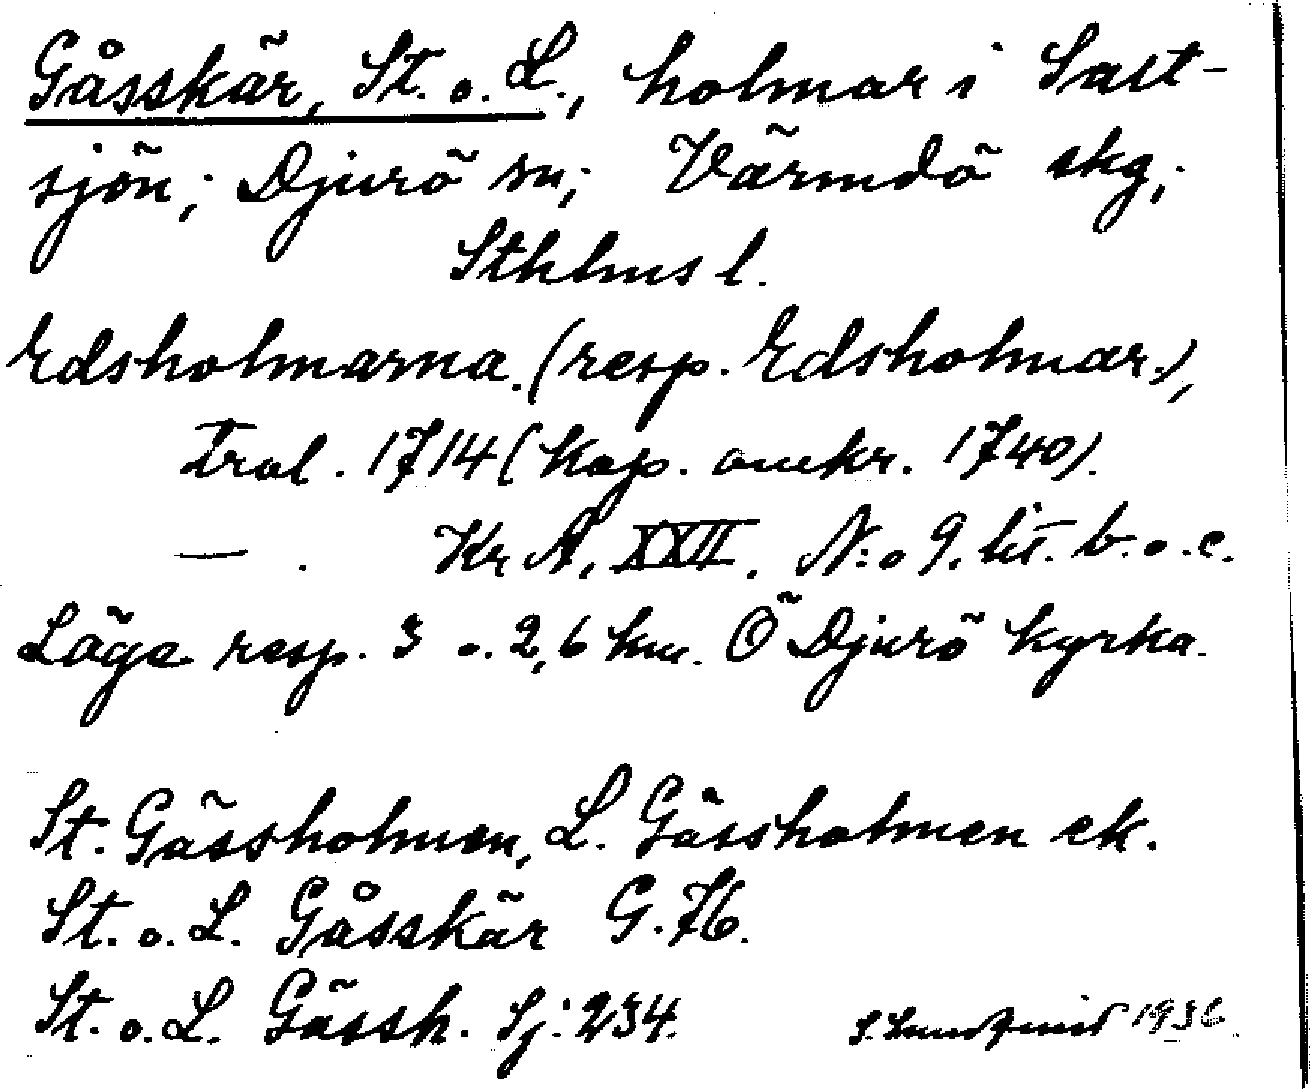 Gåsskär, St. o. L., holmar i Salt-
sjön; Djurö sn; Värmdö skg;
Sthlms l.
Edsholmarna. (resp. Edsholmar.),
tral. 1714 (Kop. omkr. 1740).
— . Kr A, XXII. N:o 9. lit. b. o. c.
Läge resp. 3 o. 2,6 km. Ö Djurö kyrka.
St. Gässholmen, L. Gässholmen ek.
St. o. L. Gåsskär G. 76.
St. o. L. Gässh. Sj: 234.
1936